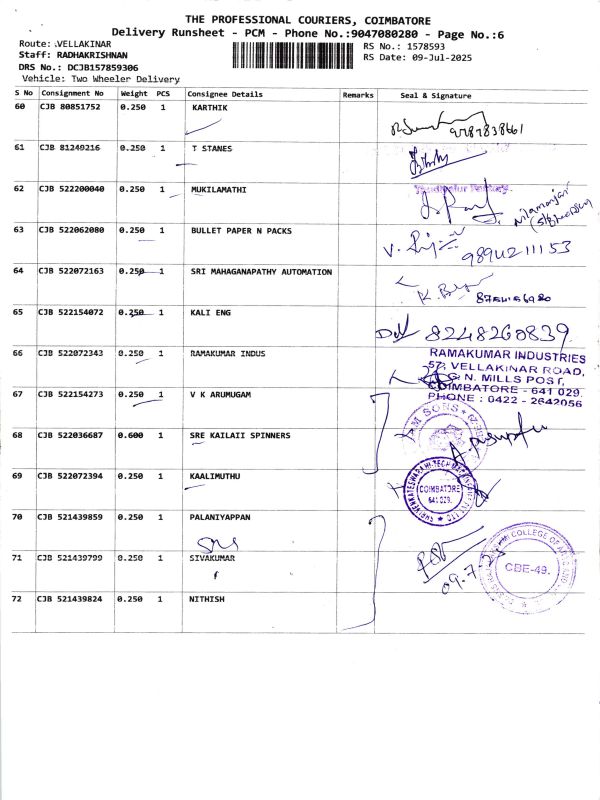 THE PROFESSIONAL COURIERS, COIMBATORE
Delivery Runsheet - PCM - Phone No.:9047080280 - Page No.:6
Route: .VELLAKINAR
RS No.: 1578593
Staff: RADHAKRISHNAN
RS Date: 09-Jul-2025
DRS No.: DCJB157859306
Vehicle: Two Wheeler Delivery
S No Consignment No Weight PCS Consignee Details Remarks Seal & Signature
60 CJB 80851752 0.250 1 KARTHIK
61 CJB 81249216 0.250 1 T STANES
62 CJB 522200040 0.250 1 MUKILAMATHI
63 CJB 522062080 0.250 1 BULLET PAPER N PACKS
98942 11153
64 CJB 522072163 0.250 1 SRI MAHAGANAPATHY AUTOMATION
65 CJB 522154072 0.250 1 KALI ENG
8248260839
66 CJB 522072343 0.250 1 RAMAKUMAR INDUS
RAMAKUMAR INDUSTRIES
57, VELLAKINAR ROAD,
G. N. MILLS POST,
COIMBATORE - 641 029.
PHONE : 0422 - 2642056
67 CJB 522154273 0.250 1 V K ARUMUGAM
68 CJB 522036687 0.600 1 SRE KAILAII SPINNERS
M SONS
69 CJB 522072394 0.250 1 KAALIMUTHU
COIMBATORE
641 029.
70 CJB 521439859 0.250 1 PALANIYAPPAN
71 CJB 521439799 0.250 1 SIVAKUMAR
CBE-49.
72 CJB 521439824 0.250 1 NITHISH